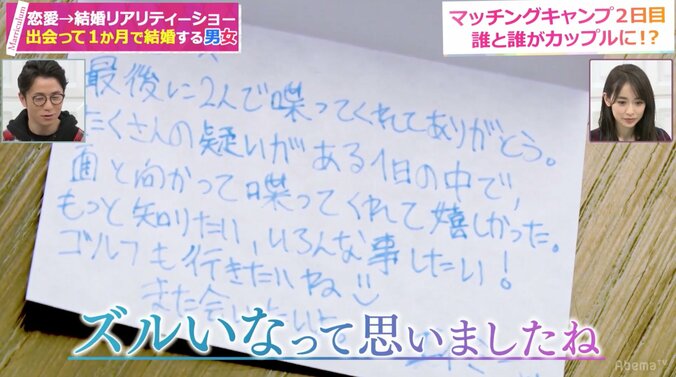 Marriculum
恋愛→結婚リアリティーショー
出会って1か月で結婚する男女
マッチングキャンプ2日目
誰と誰がカップルに!?
最後に2人で喋ってくれてありがとう。
たくさんの疑いがある1日の中で、
面と向かって喋ってくれて嬉しかった。
もっと知りたい、いろんな事したい!
ゴルフも行きたいね
また会いたい
ズルいなって思いましたね
AbemaTV